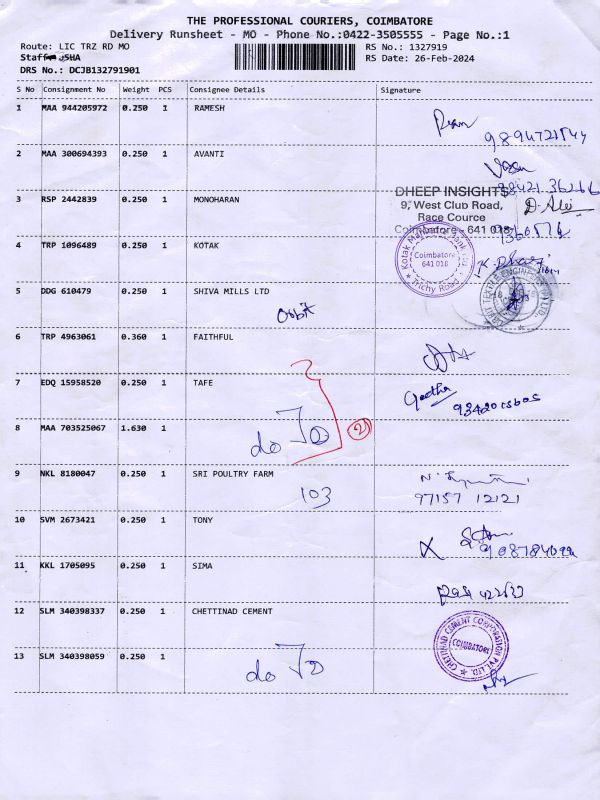 THE PROFESSIONAL COURIERS, COIMBATORE
Delivery Runsheet - MO - Phone No.:0422-3505555 - Page No.:1
Route: LIC TRZ RD MO RS No.: 1327919
RS Date: 26-Feb-2024
DRS No.: DCJB132791901
S No Consignment No Weight PCS Consignee Details Signature
1 MAA 944205972 0.250 1 RAMESH
2 MAA 300694393 0.250 1 AVANTI
DHEEP INSIGHTS
3 RSP 2442839 0.250 1 MONOHARAN 9, West Club Road,
Race Cource
Coimbatore - 641 018
4 TRP 1096489 0.250 1 KOTAK
Coimbatore
641 018
Trichy Road
5 DDG 610479 0.250 1 SHIVA MILLS LTD
Orbit
6 TRP 4963061 0.360 1 FAITHFUL
7 EDQ 15958520 0.250 1 TAFE
Geetha
8 MAA 703525067 1.630 1
do
9 NKL 8180047 0.250 1 SRI POULTRY FARM
103 97157 12121
10 SVM 2673421 0.250 1 TONY
11 KKL 1705095 0.250 1 SIMA
12 SLM 340398337 0.250 1 CHETTINAD CEMENT
CHETTINAD CEMENT CORPORATION PVT LTD.
COIMBATORE
13 SLM 340398059 0.250 1
do